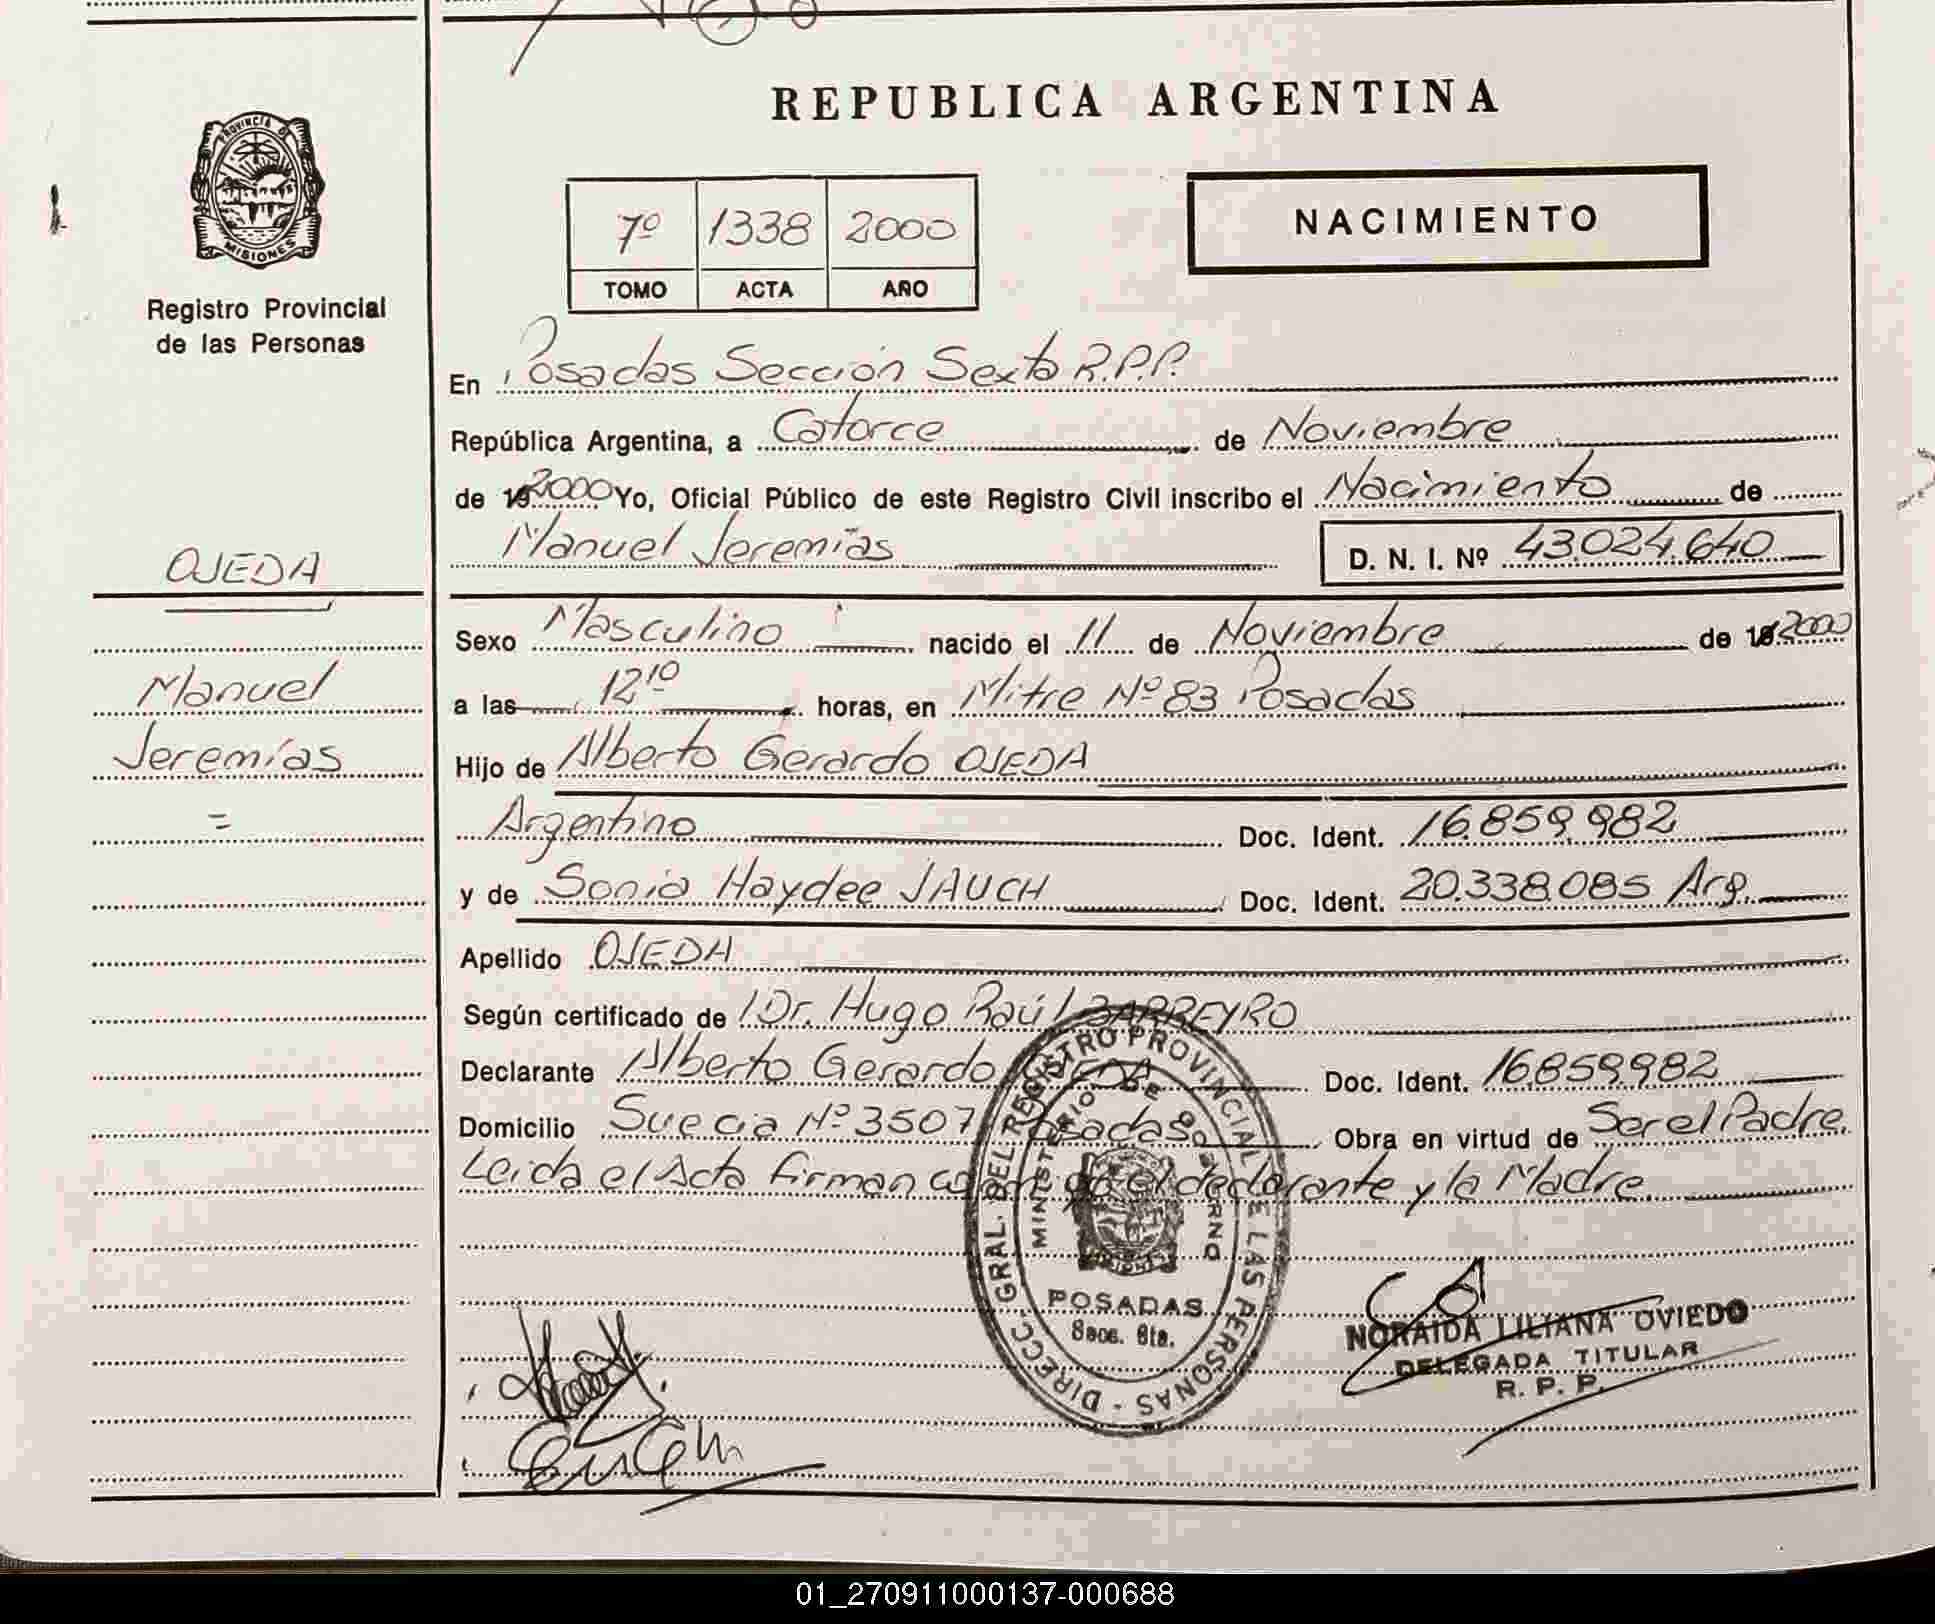 REPUBLICA ARGENTINA
PROVINCIA DE
MISIONES
Registro Provincial
de las Personas
7º 1338 2000
TOMO ACTA AÑO
NACIMIENTO
En Posadas Sección Sexta R.P.P.
República Argentina, a Catorce de Noviembre
de 19 2000 Yo, Oficial Público de este Registro Civil inscribo el Nacimiento de
Manuel Jeremías D. N. I. Nº 43.024.640
OJEDA
Manuel
Jeremías
=
Sexo Masculino nacido el 11 de Noviembre de 19 2000
a las 12¹⁰ horas, en Mitre Nº 83 Posadas
Hijo de Alberto Gerardo OJEDA
Argentino Doc. Ident. 16.859.982
y de Sonia Haydee JAUCH Doc. Ident. 20.338.085 Arg.
Apellido OJEDA
Según certificado de Dr. Hugo Raúl BARREYRO
Declarante Alberto Gerardo OJEDA Doc. Ident. 16.859.982
Domicilio Suecia Nº 3507 Posadas Obra en virtud de Ser el Padre.
Leida el Acta firman conmigo el declarante y la Madre
DIRECC. GRAL. DEL REGISTRO PROVINCIAL DE LAS PERSONAS -
MINISTERIO DE GOBIERNO
POSADAS
Secc. 6ta.
NORAIDA LILIANA OVIEDO
DELEGADA TITULAR
R. P. P.
01_270911000137-000688